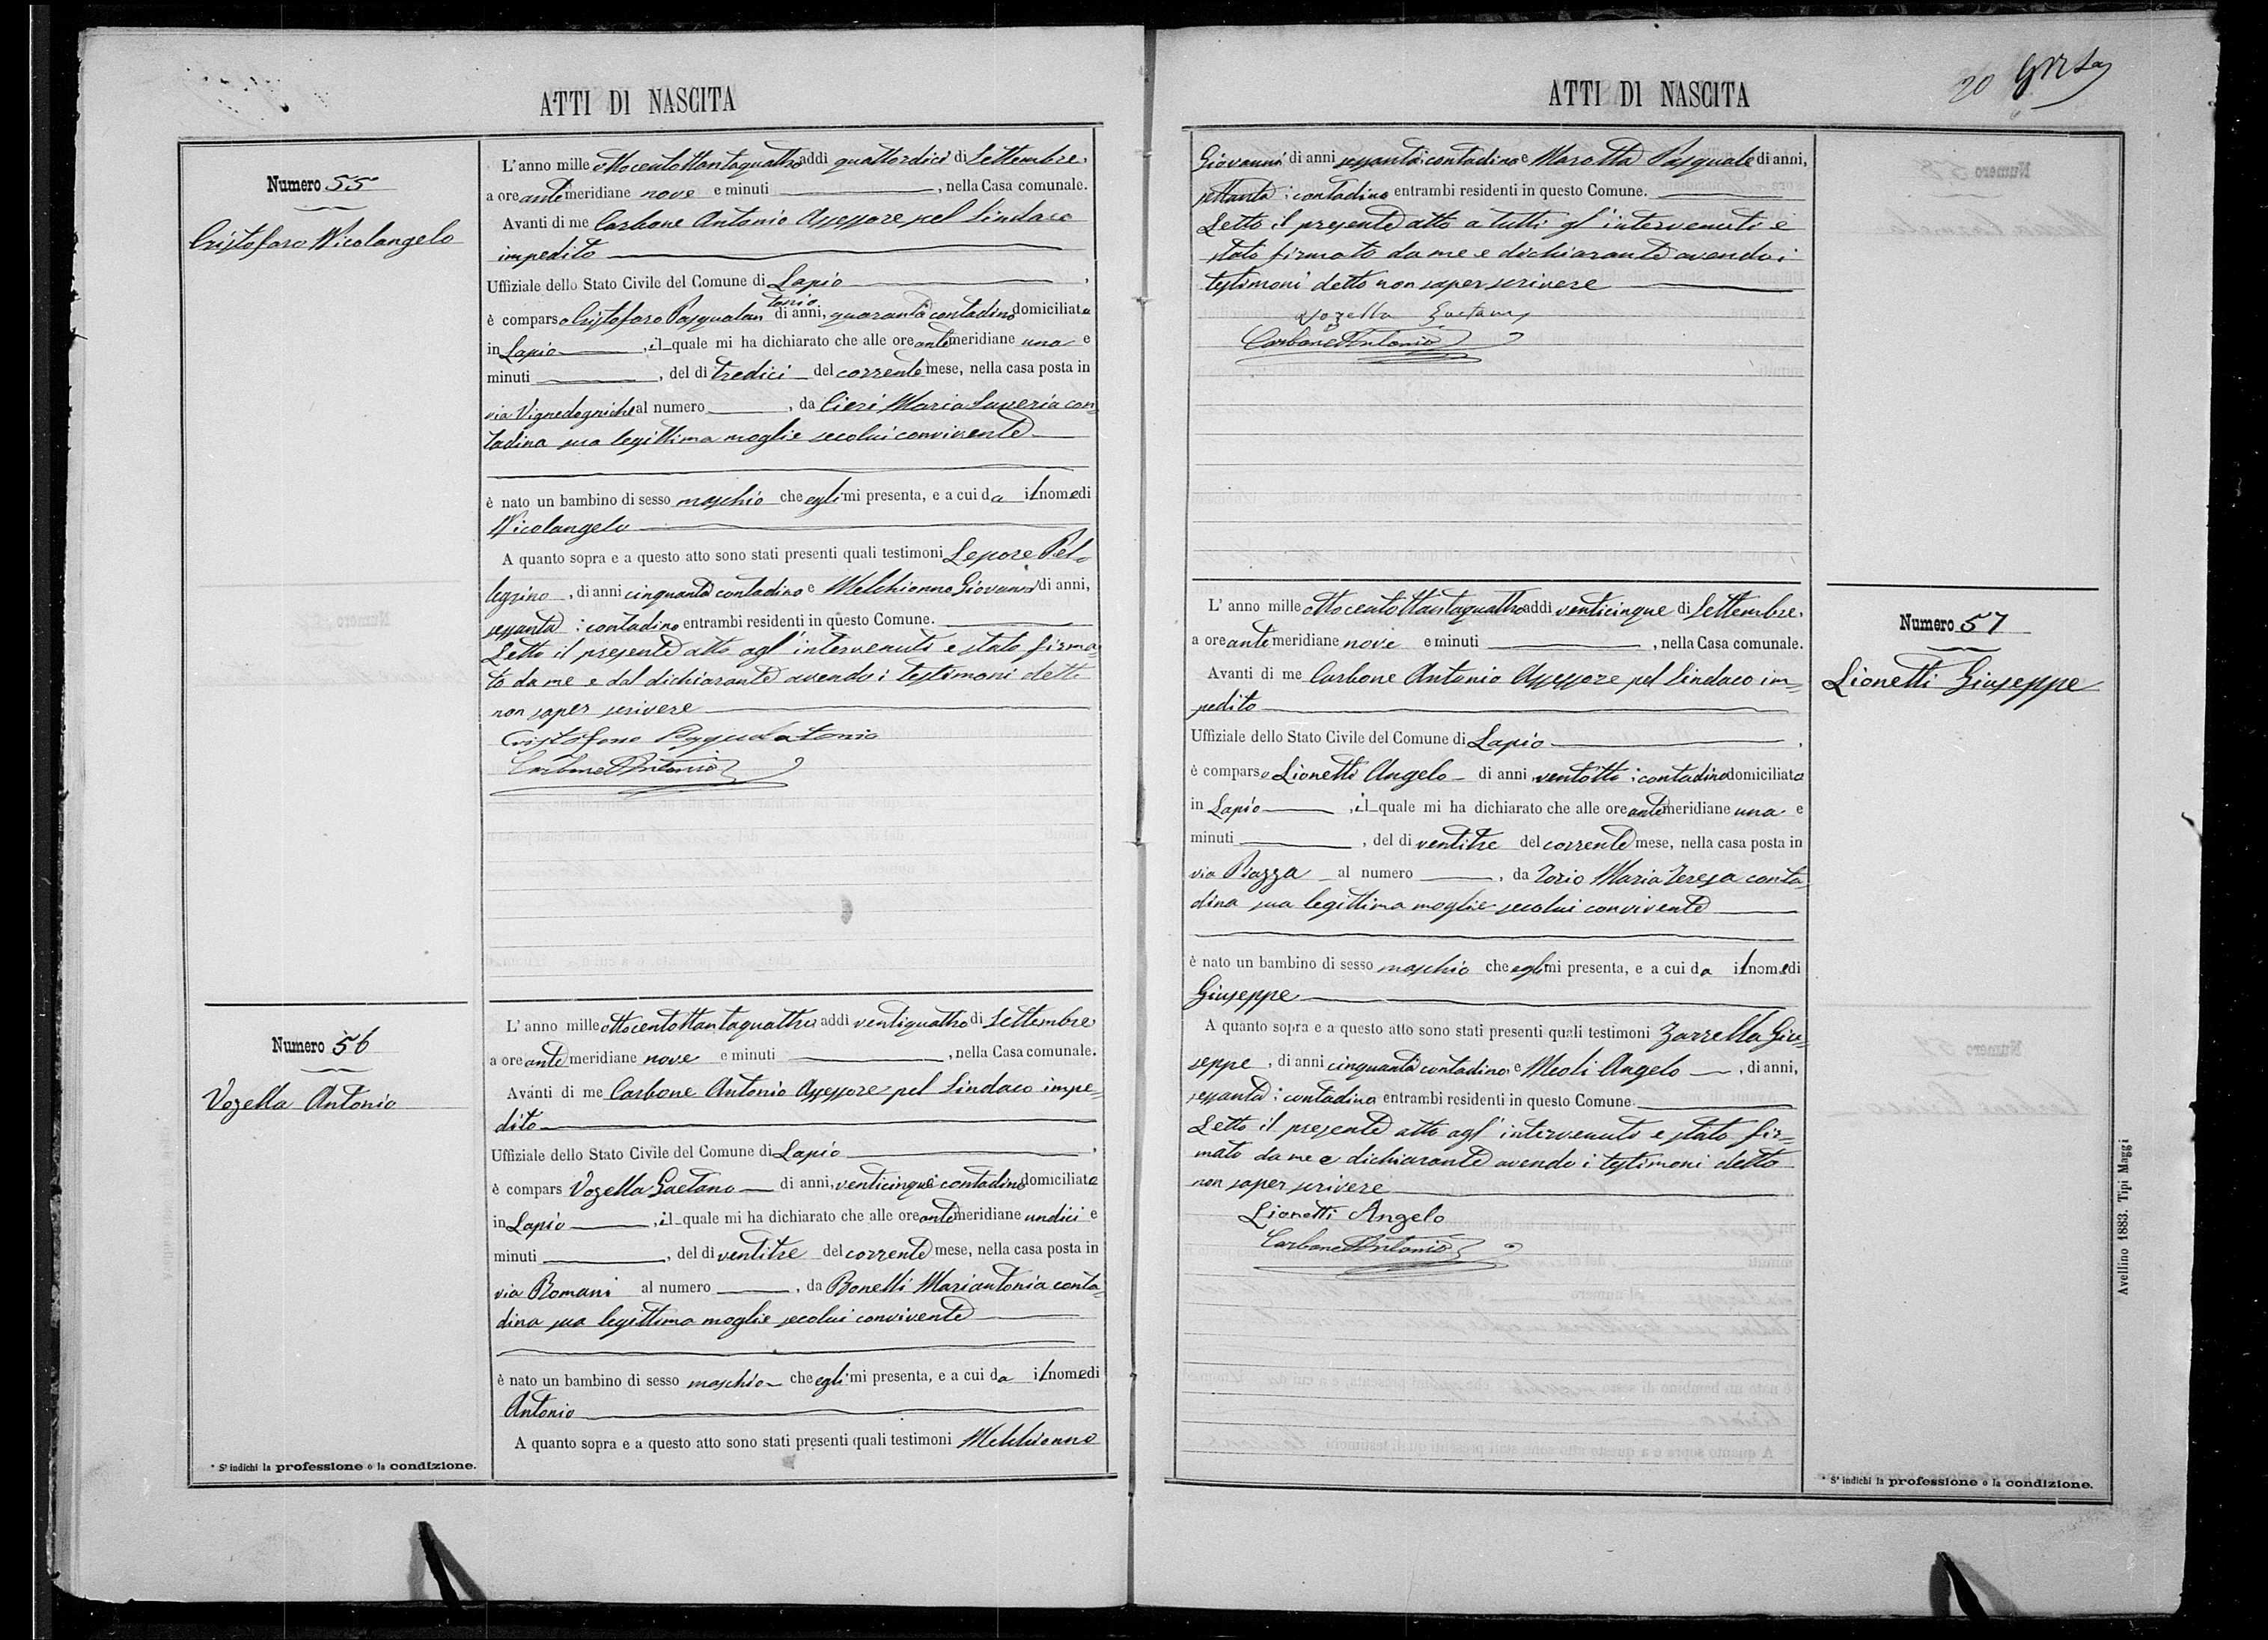 ATTI DI NASCITA
Numero 55
Cristofaro Nicolangelo
L'anno mille ottocentottantaquattro addì quattordici di Settembre
a ore antimeridiane nove e minuti , nella Casa comunale.
Avanti di me Carbone Antonio Assessore pel Sindaco
impedito
Uffiziale dello Stato Civile del Comune di Lapio
tonio
è comparso Cristofaro Pasqualan di anni, quaranta contadino domiciliato
in Lapio , il quale mi ha dichiarato che alle ore antimeridiane una e
minuti , del dì tredici del corrente mese, nella casa posta in
via al numero , da Cieri Maria Saveria con=
tadina sua legittima moglie secolui convivente
è nato un bambino di sesso maschio che egli mi presenta, e a cui da il nome di
Nicolangelo
A quanto sopra e a questo atto sono stati presenti quali testimoni Lepore Pel=
legrino , di anni cinquanta contadino e Melchionno Giovanni di anni,
sessanta : contadino entrambi residenti in questo Comune.
Letto il presente atto agl'intervenuti e stato firma=
to da me e dal dichiarante avendo i testimoni detto
non saper scrivere
Cristofano Pasqualatonio
Carbone Antonio
Numero 56
Vozella Antonio
L'anno mille ottocentottantaquattro addì ventiquattro di Settembre
a ore antimeridiane nove e minuti , nella Casa comunale.
Avanti di me Carbone Antonio Assessore pel Sindaco impe=
dito
Uffiziale dello Stato Civile del Comune di Lapio
è compars Vozella Gaetano di anni, venticinque contadino domiciliato
in Lapio , il quale mi ha dichiarato che alle ore antimeridiane undici e
minuti , del dì ventitre del corrente mese, nella casa posta in
via Romani al numero , da Bonelli Mariantonia conta=
dina sua legittima moglie secolui convivente
è nato un bambino di sesso maschio che egli mi presenta, e a cui da il nome di
Antonio
A quanto sopra e a questo atto sono stati presenti quali testimoni Melchionno
* S'indichi la professione o la condizione.
ATTI DI NASCITA
20
Giovanni di anni sessanta : contadino e Marotta Pasquale di anni,
settanta : contadino entrambi residenti in questo Comune.
Letto il presente atto a tutti gl'intervenuti è
stato firmato da me e dichiarante avendo i
testimoni detto non saper scrivere
Vozella Gaetano
Carbone Antonio
L'anno mille ottocentottantaquattro addì venticinque di Settembre
a ore antimeridiane nove e minuti , nella Casa comunale.
Avanti di me Carbone Antonio Assessore pel Sindaco im=
pedito
Uffiziale dello Stato Civile del Comune di Lapio
è comparso Lionetti Angelo di anni ventotto : contadino domiciliato
in Lapio , il quale mi ha dichiarato che alle ore antimeridiane una e
minuti , del dì ventitre del corrente mese, nella casa posta in
via Piazza al numero , da Iorio Maria Teresa conta
dina sua legittima moglie secolui convivente
è nato un bambino di sesso maschio che egli mi presenta, e a cui da il nome di
Giuseppe
A quanto sopra e a questo atto sono stati presenti quali testimoni Zarrella Giu=
seppe , di anni cinquanta contadino e Meoli Angelo , di anni,
sessanta : contadino entrambi residenti in questo Comune.
Letto il presente atto agl'intervenuti e stato fir=
mato da me e dichiarante avendo i testimoni detto
non saper scrivere
Lionetti Angelo
Carbone Antonio
Numero 57
Lionetti Giuseppe
* S'indichi la professione o la condizione.
Avellino 1883. Tipi Maggi